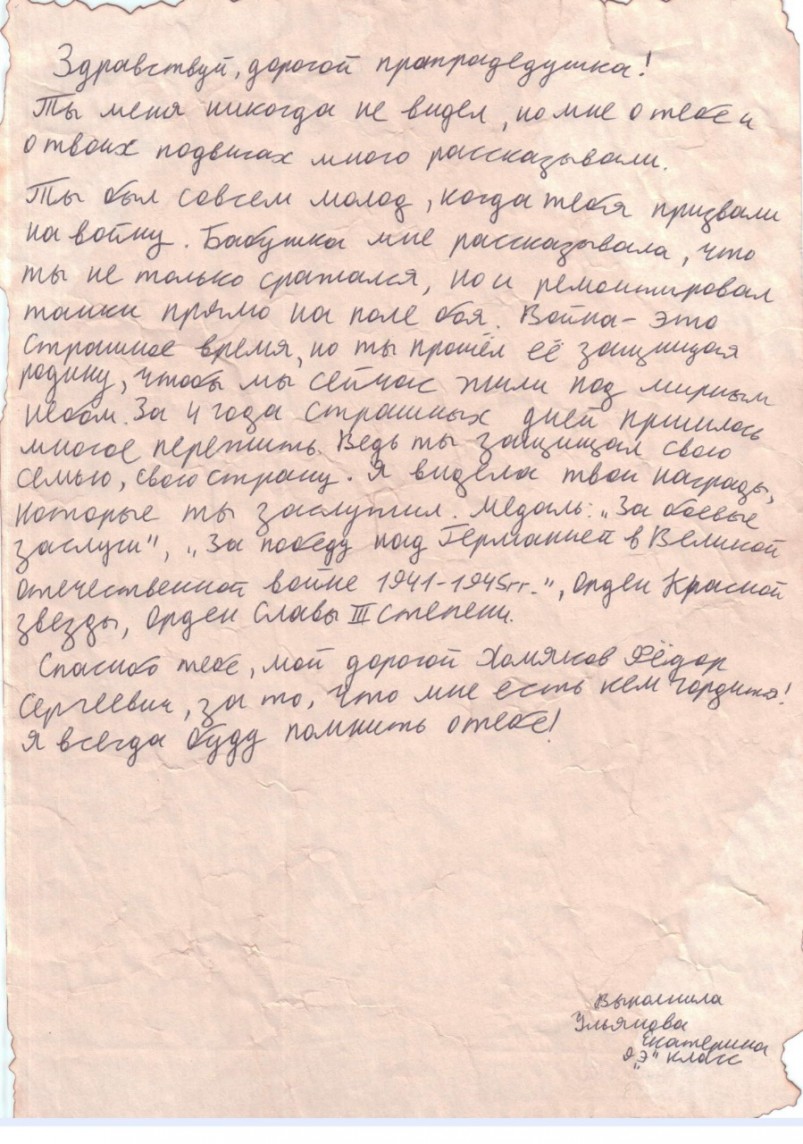 Здравствуй, дорогой прапрадедушка!
Ты меня никогда не видел, но мне о тебе и
о твоих подвигах много рассказывали.
Ты был совсем молод, когда тебя призвали
на войну. Бабушка мне рассказывала, что
ты не только сражался, но и ремонтировал
танки прямо на поле боя. Война - это
страшное время, но ты прошёл её защищая
родину, чтобы мы сейчас жили под мирным
небом. За 4 года страшных дней пришлось
многое пережить. Ведь ты защищал свою
семью, свою страну. Я видела твои награды,
которые ты заслужил. Медаль: „За боевые
заслуги", „За победу над Германией в Великой
отечественной войне 1941-1945гг.", Орден Красной
звезды, Орден Славы III степени.
Спасибо тебе, мой дорогой Хомяков Фёдор
Сергеевич, за то, что мне есть кем гордится!
Я всегда буду помнить о тебе!
Выполнила
Ульянова
Екатерина
„Э" класс